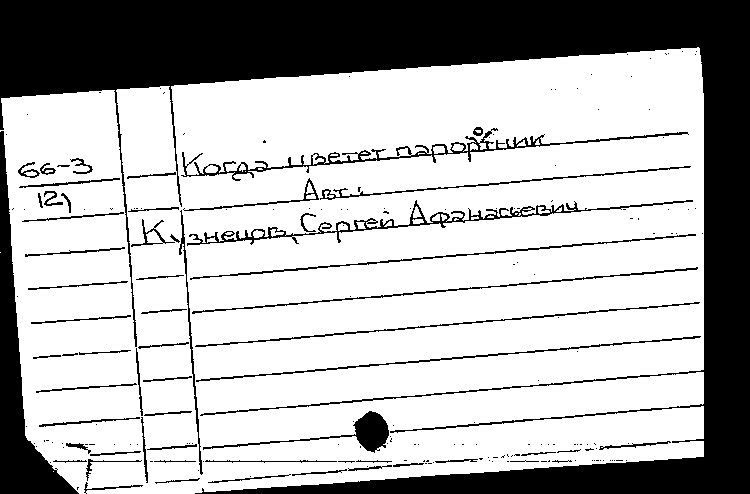 66-3 Когда цветет папортник
12) Авт.:
Кузнецов, Сергей Афанасьевич